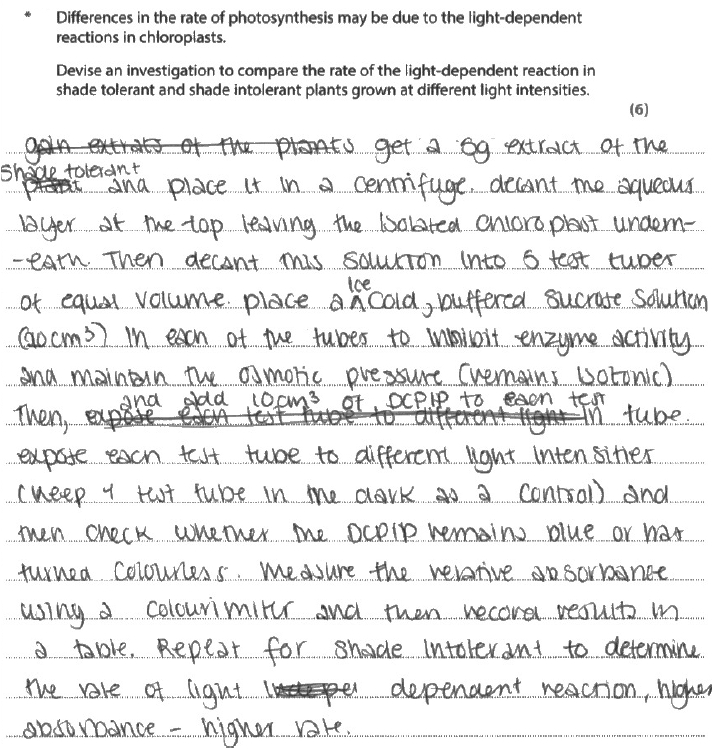 * Differences in the rate of photosynthesis may be due to the light-dependent
reactions in chloroplasts.
Devise an investigation to compare the rate of the light-dependent reaction in
shade tolerant and shade intolerant plants grown at different light intensities.
(6)
gain extrats of the plants get a 5g extract of the
shade tolerant
plant and place it in a centrifuge. decant the aqueous
layer at the top leaving the isolated chloroplast undern-
-eath. Then decant this solution into 5 test tubes
of equal volume. place a ice cold, buffered sucrose solution
(20cm³) in each of the tubes to inhibit enzyme activity
and maintain the osmotic pressure (remains isotonic)
and add 10cm³ of DCPIP to each test
Then, expose each test tube to different light in tube.
expose each test tube to different light intensities
(keep 1 test tube in the dark as a control) and
then check whether the DCPIP remains blue or has
turned colourless. Measure the relative absorbance
using a colourimiter and then record results in
a table. Repeat for shade intolerant to determine
the rate of light dependent reaction, higher
absorbance - higher rate.